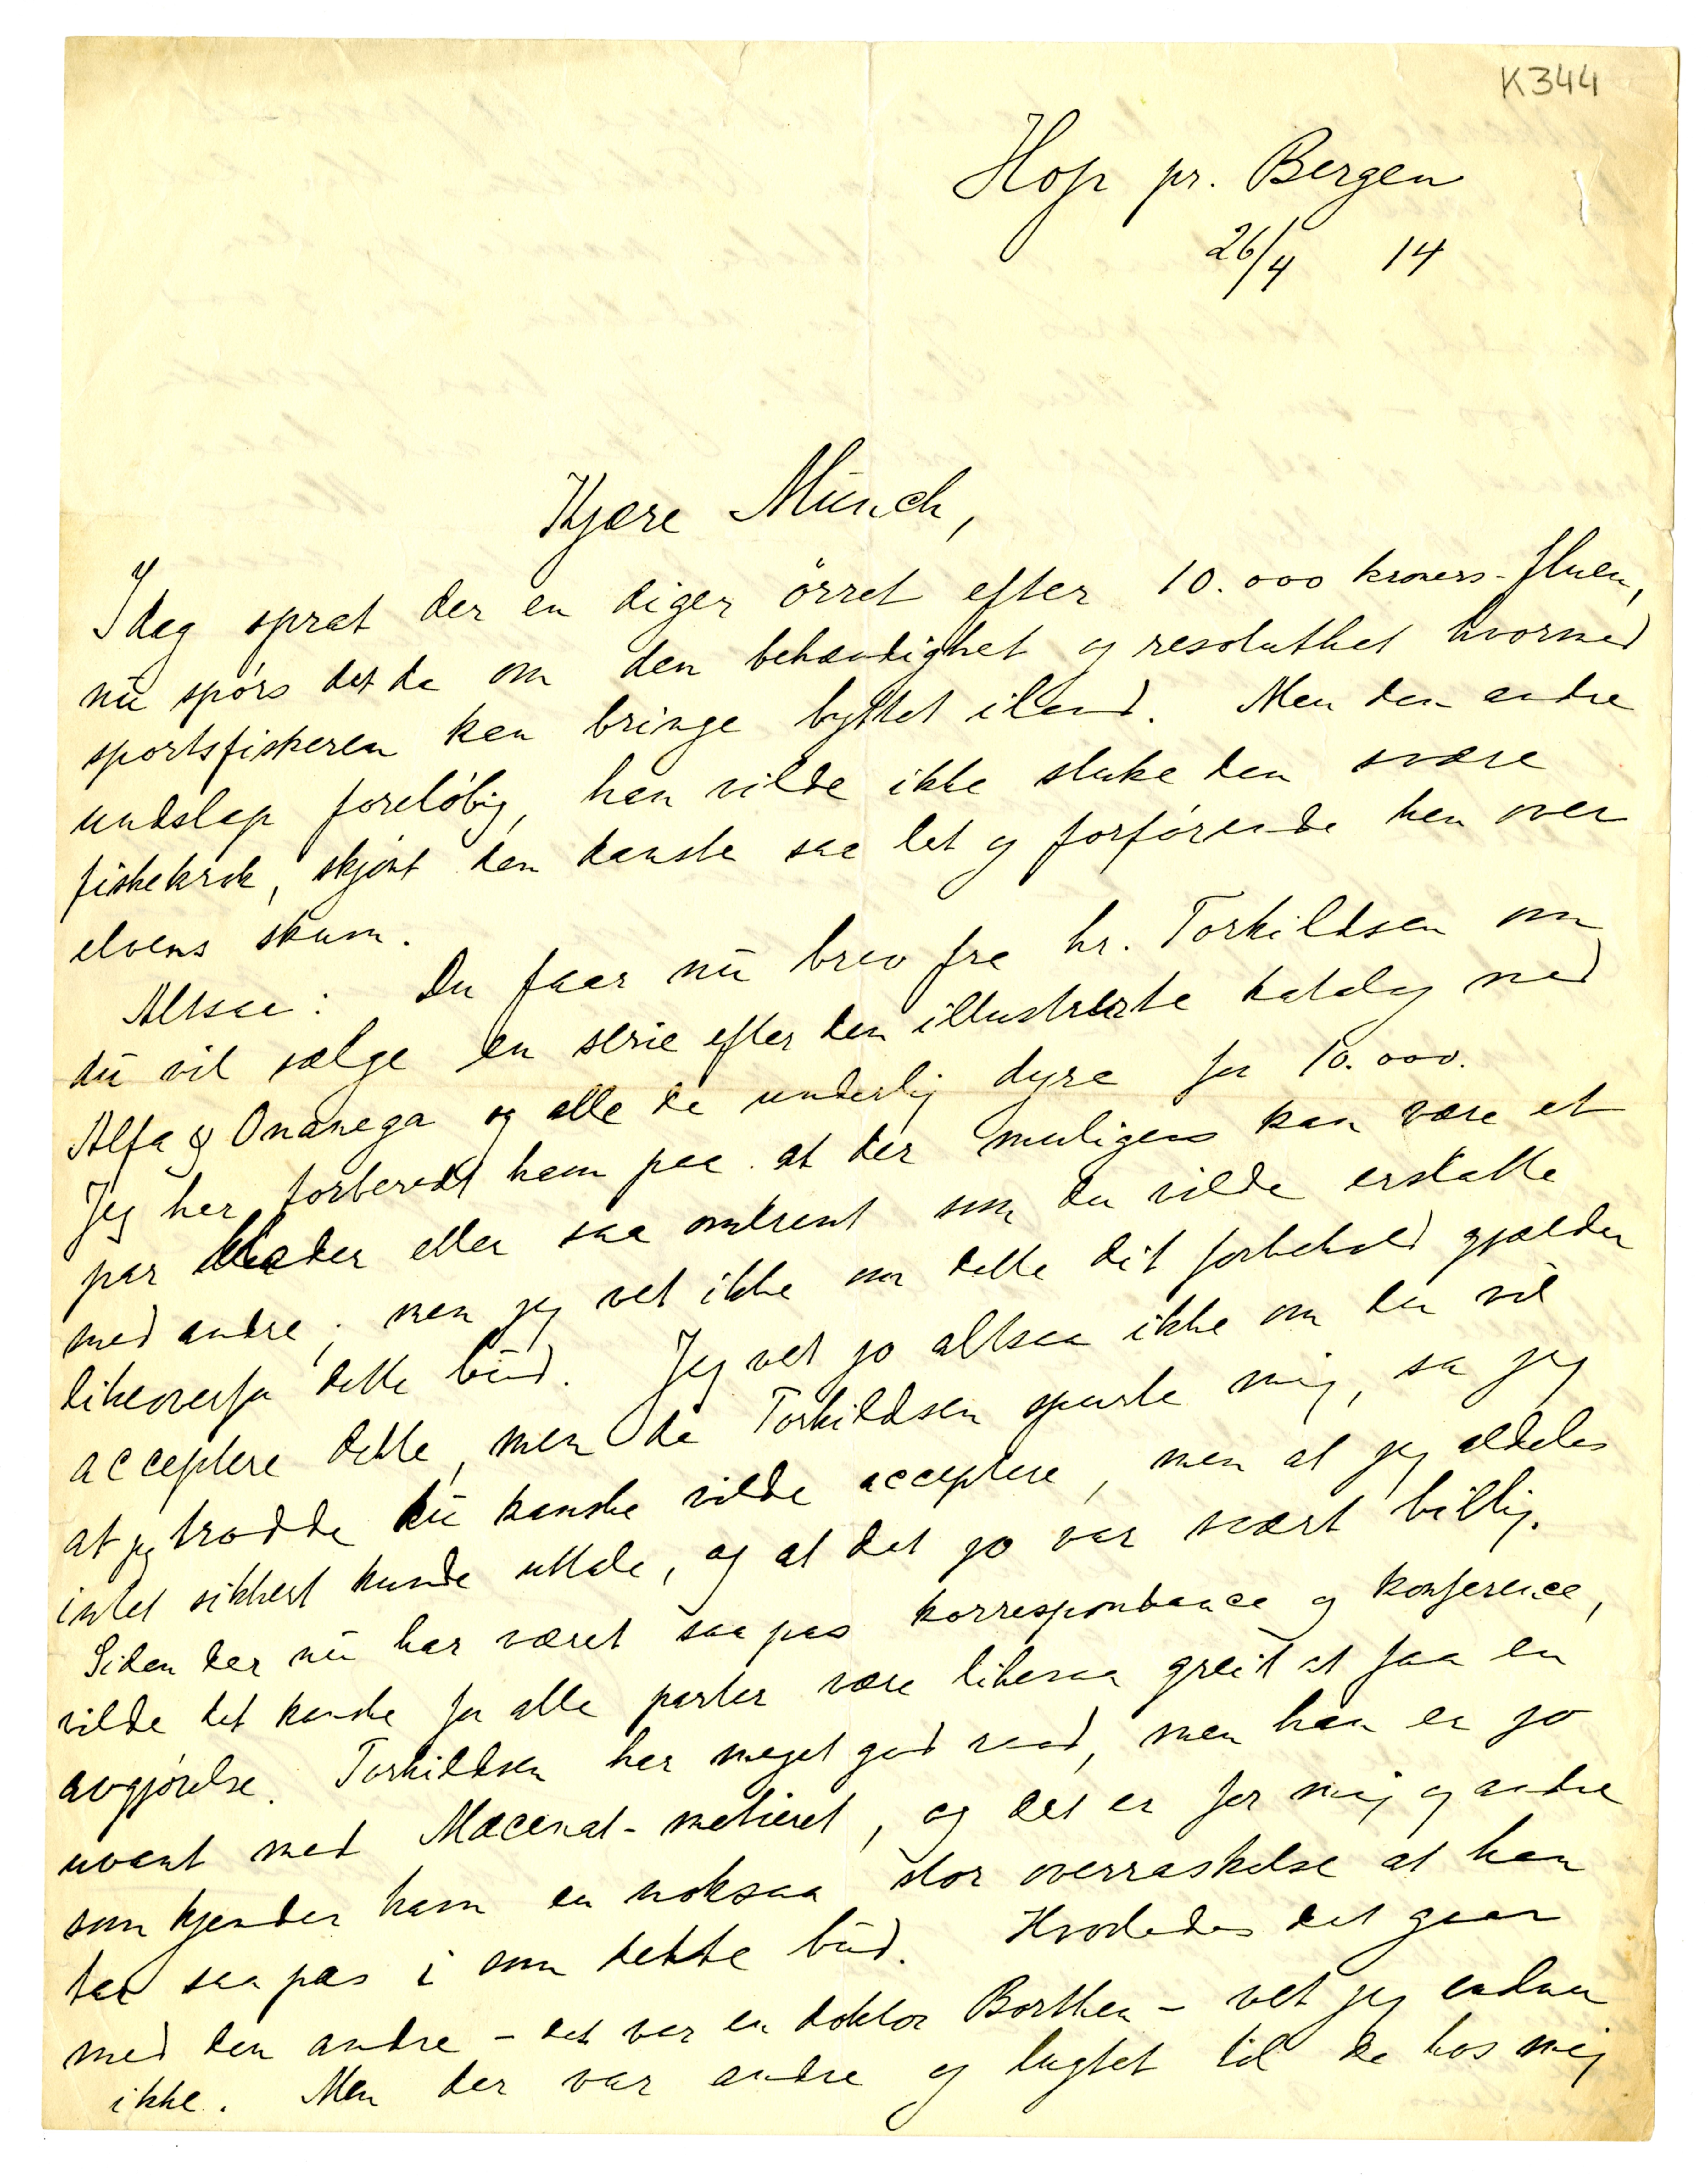 K344
Hop pr. Bergen
26/4 14
Kjære Munch,
Idag sprat der en diger örret efter 10.000 kroners-fluen,
nu spörs det da om den behændighet og resoluthet hvormed
sportsfiskeren kan bringe byttet iland. Men den andre
undslap foreløbig, han vilde ikke sluke den svære
fiskekrok, skjønt den danste saa let og forførende hen over
elvens skum.
Altsaa: Du faar nu brev fra hr. Torkildsen om
du vil sælge en serie efter den illustrerte katalog med
Alfa & Omanega og alle de underlig dyre for 10.000.
Jeg har forberedt ham paa at der muligens kan være et
par blader eller saa omtrent som du vilde erstatte
med andre; men jeg vet ikke om dette dit forbehold gjælder
likeoverfor dette bud. Jeg vet jo altsaa ikke om du vil
acceptere dette, men da Torkildsen spurte mig, sa jeg
at jeg trodde du kanske vilde acceptere, men at jeg aldeles
intet sikkert kunde uttale, og at det jo var svært billig.
Siden der nu har været saapas korrespondance og konference,
vilde det kanske for alle parter være likesaa greit at faa en
avgjørelse. Torkildsen har meget god raad, men han er jo
uvant med Mæcenat-metieret, og det er for mig og andre
som kjender ham en noksaa stor overraskelse at han
tar saa pas i som dette bud. Hvorledes det gaar
med den andre – det var en doktor Borthen – vet jeg endnu
ikke. Men der var andre og lugtet til de hos mig